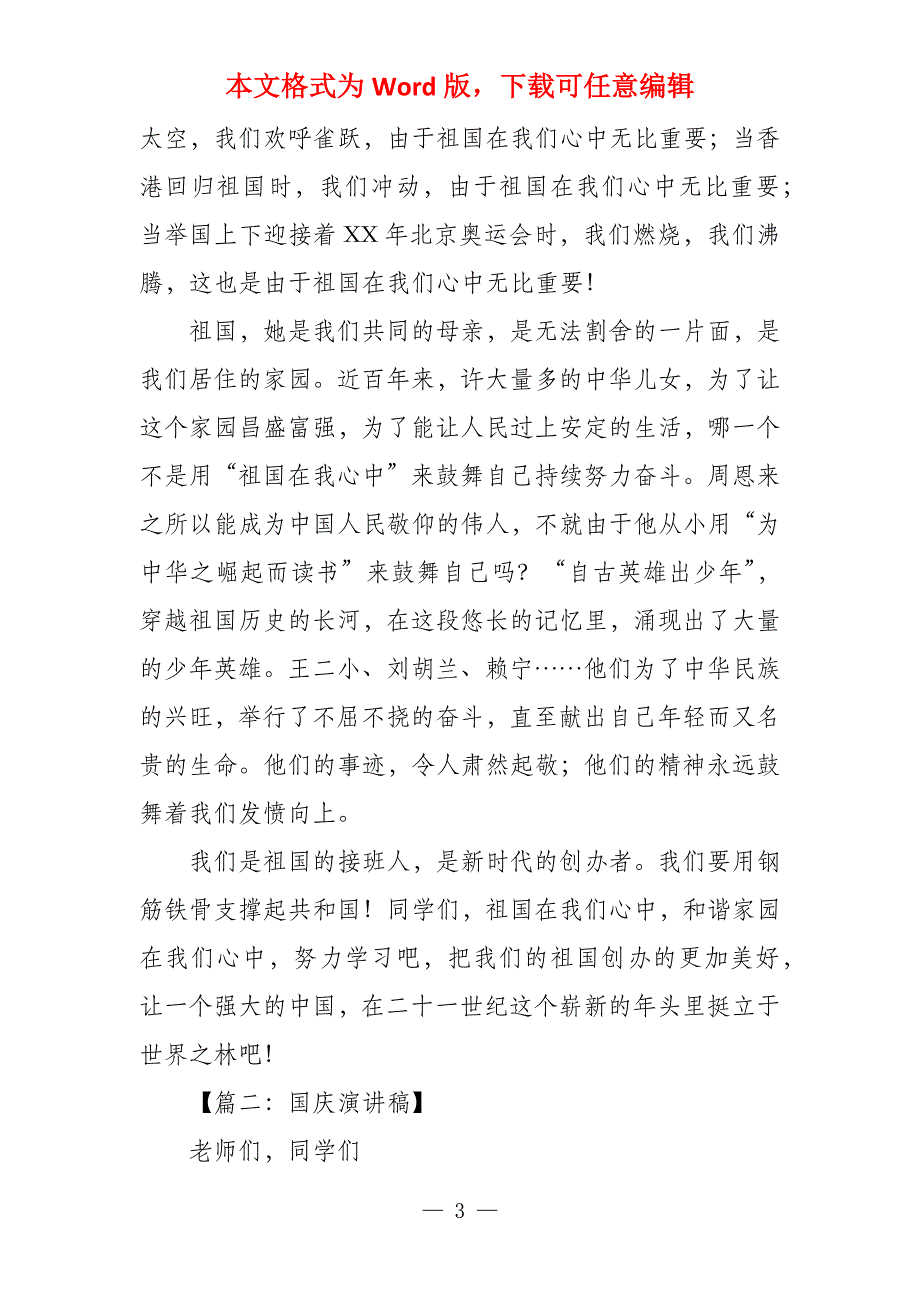 本文格式为 Word 版，下载可任意编辑
太空，我们欢呼雀跃，由于祖国在我们心中无比重要；当香
港回归祖国时，我们冲动，由于祖国在我们心中无比重要；
当举国上下迎接着 XX 年北京奥运会时，我们燃烧，我们沸
腾，这也是由于祖国在我们心中无比重要！
祖国，她是我们共同的母亲，是无法割舍的一片面，是
我们居住的家园。近百年来，许大量多的中华儿女，为了让
这个家园昌盛富强，为了能让人民过上安定的生活，哪一个
不是用“祖国在我心中”来鼓舞自己持续努力奋斗。周恩来
之所以能成为中国人民敬仰的伟人，不就由于他从小用“为
中华之崛起而读书”来鼓舞自己吗？“自古英雄出少年”，
穿越祖国历史的长河，在这段悠长的记忆里，涌现出了大量
的少年英雄。王二小、刘胡兰、赖宁……他们为了中华民族
的兴旺，举行了不屈不挠的奋斗，直至献出自己年轻而又名
贵的生命。他们的事迹，令人肃然起敬；他们的精神永远鼓
舞着我们发愤向上。
我们是祖国的接班人，是新时代的创办者。我们要用钢
筋铁骨支撑起共和国！同学们，祖国在我们心中，和谐家园
在我们心中，努力学习吧，把我们的祖国创办的更加美好，
让一个强大的中国，在二十一世纪这个崭新的年头里挺立于
世界之林吧！
【篇二：国庆演讲稿】
老师们，同学们
— 3 —